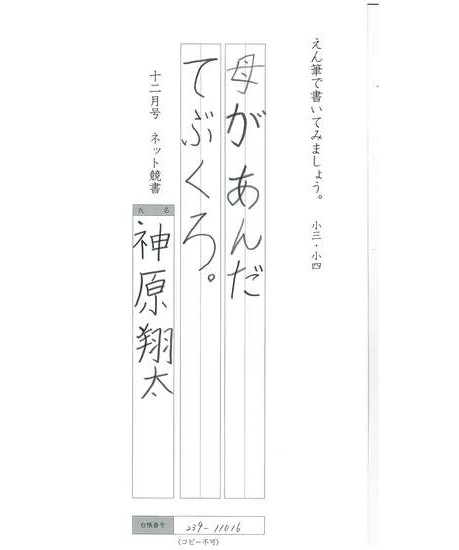 えん筆で書いてみましょう。 小三・小四
母があんだ
てぶくろ。
十二月号 ネット競書
氏名
神原翔太
台帳番号 239-11016
(コピー不可)